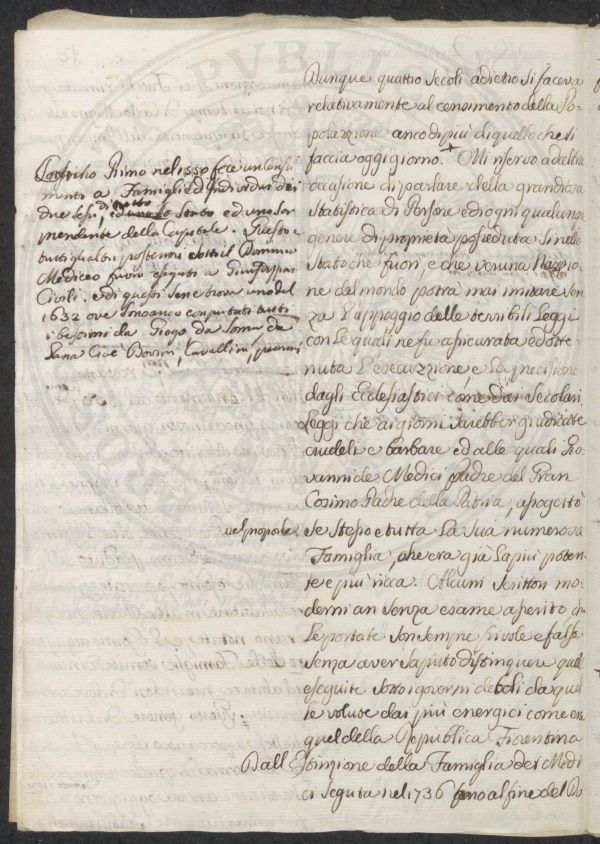 Dunque quattro secoli adietro si faceva
relativamente al censimento della Po-
polazione anco di più di quello che si
faccia oggi giorno. + Mi riservo ad altra
occasione di parlare della grandiosa
Statistica di Persone ed ogni qualunque
genere di proprietà posseduta si nello
Stato che fuori, e che veruna Nazio-
ne del mondo potrà mai imitare sen-
za l'appoggio delle terribili Leggi
con le quali ne fu assicurata ed otte-
nuta l'esecuzzione e la precisione
dagli Ecclesiastici come dai Secolari
Leggi che ai giorni sarebber giudicate
crudeli e barbare ed alle quali Gio-
vanni de Medici Padre del Gran
Cosimo Padre della Patria, assogettò
se stesso e tutta la sua numerosa
Famiglia, che era già la più poten-
te e più ricca. Alcuni scrittori mo-
derni an senza esame asserito che
le portate son sempre frivole e false
senza aver saputo distinguer quelle
eseguite sotto i governi deboli da quel-
le volute dai più energici come era
quel della Repubblica Fiorentina
Dall'Estinzione della Famiglia dei Medi-
ci seguta nel 1736 fino al fine del
+ Cosimo Primo nel 1550 fece un Censi-
mento a Famiglie ed Individui dei
due sessi, di tutto lo Stato ed uno
della Capitale. Questo e
tutti gli altri posteriori sotto il Dominio
Mediceo furon eseguiti
Civili, e di questi se ne trova uno del
1632 ove sono anco computati tutti
i bestiami da Giogo da Soma da
Lana cioè Bovini, Cavallini, pecorini